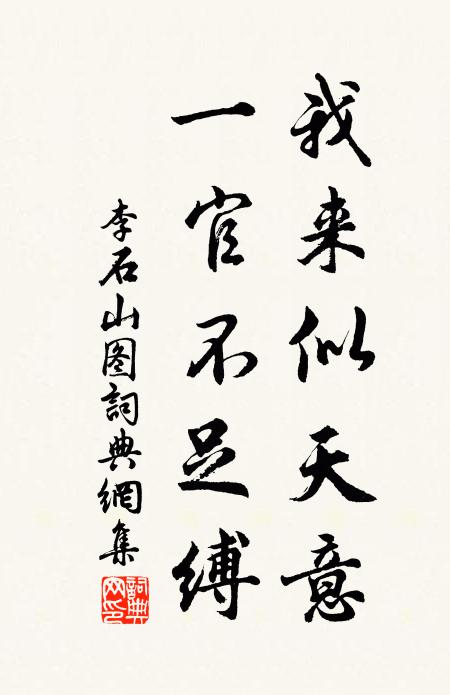 我来似天意
一官不足縛
李石山图詞典網集
詞典网印